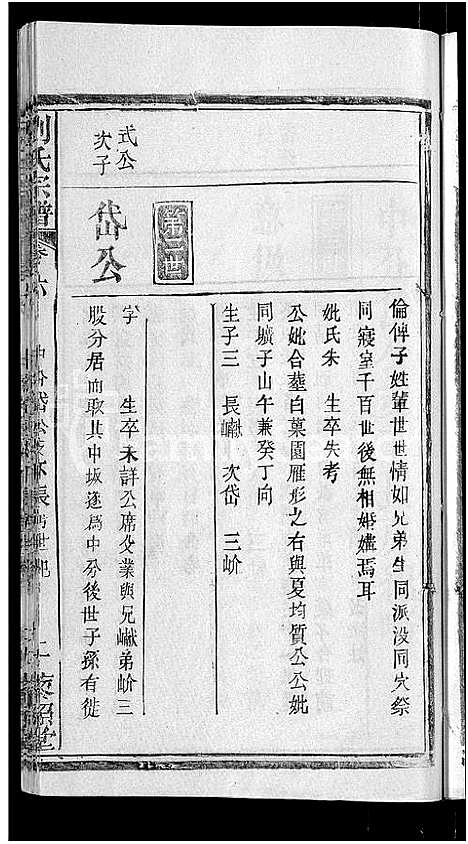 倫俾子姓輩世世情如兄弟生同派没同穴祭
同寢室千百世後無相婚媾焉耳
妣氏朱 生卒失考
公妣合葬白菓園雁形之右與夏均質公公妣
同壙子山午兼癸丁向
生子三 長𪩘 次岱 三岎
第二世
式公次子
岱公
字 生卒未詳公席父業與兄𪩘弟岎三
股分居而取其中坂遂爲中分後世子孫有徙
劉氏宗譜
卷六